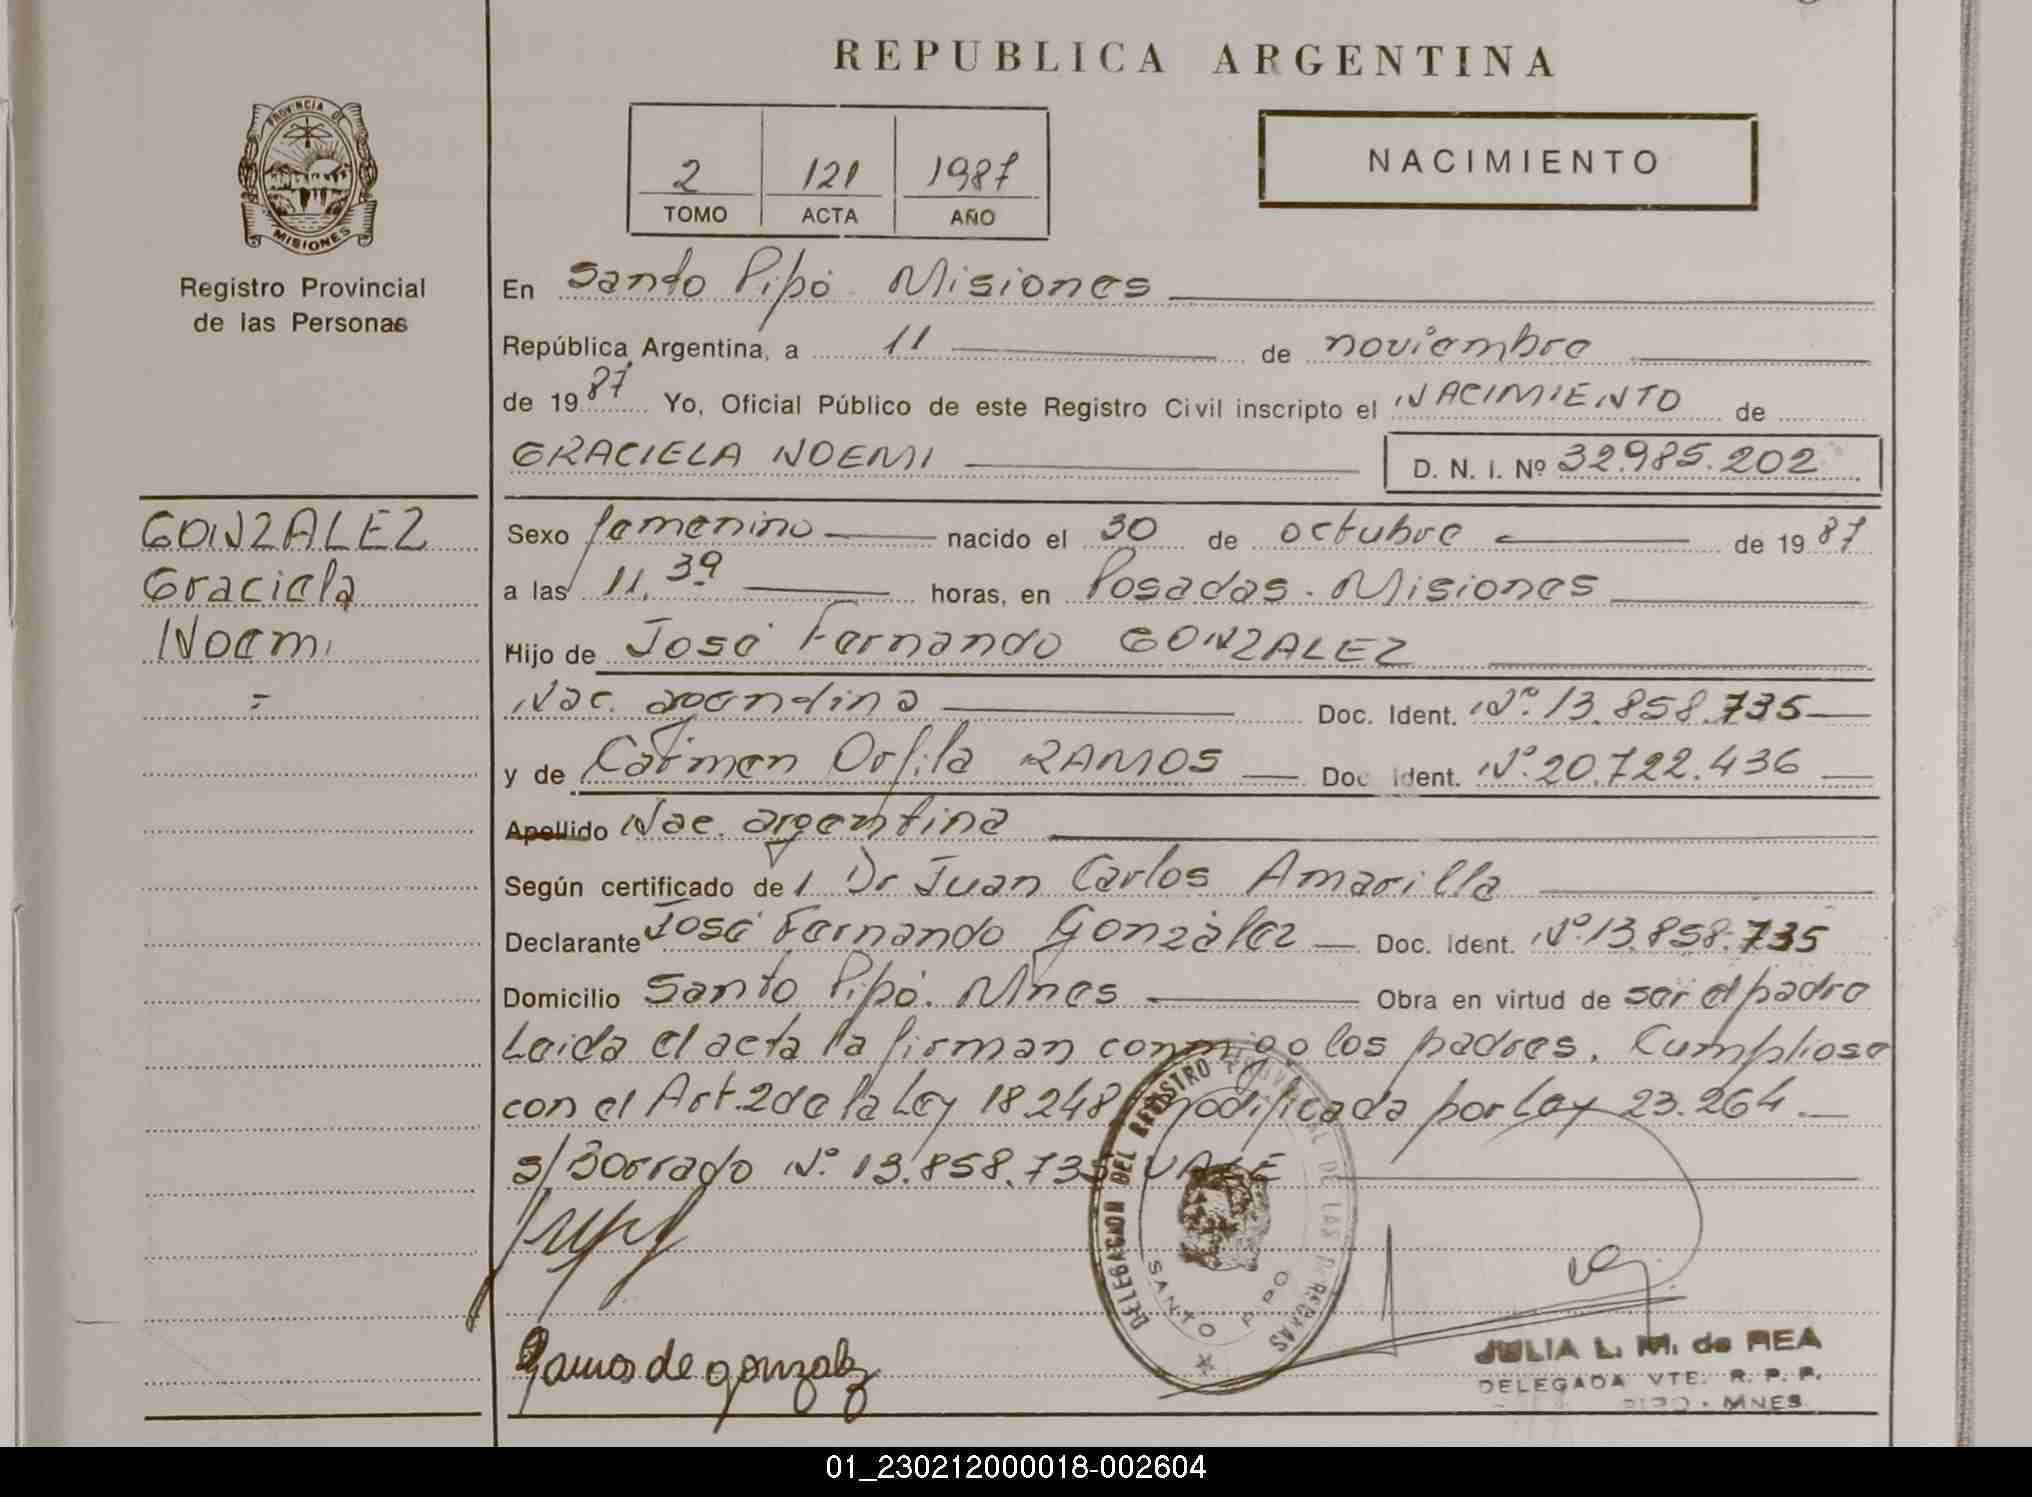 REPUBLICA ARGENTINA
PROVINCIA DE
MISIONES
Registro Provincial
de las Personas
2 121 1987
TOMO ACTA AÑO
NACIMIENTO
En Santo Pipó Misiones
República Argentina, a 11 de noviembre
de 1987 Yo, Oficial Público de este Registro Civil inscripto el NACIMIENTO de
GRACIELA NOEMI D. N. I. Nº 32.985.202
GONZALEZ
Graciela
Noemi
=
Sexo femenino nacido el 30 de octubre de 1987
a las 11,39 horas, en Posadas - Misiones
Hijo de José Fernando GONZALEZ
Nac. argentina Doc. Ident. Nº 13.858.735
y de Carmen Orfila RAMOS Doc. Ident. Nº 20.722.436
Apellido Nac. argentina
Según certificado de l Dr Juan Carlos Amarilla
Declarante José Fernando González Doc. Ident. Nº 13.858.735
Domicilio Santo Pipó. Mnes Obra en virtud de ser el padre
Leida el acta la firman conmigo los padres. Cumpliose
con el Art. 2 de la Ley 18.248 modificada por Ley 23.264.
s/Borrado Nº 13.858.735 VALE
DELEGACION DEL REGISTRO PROVINCIAL DE LAS PERSONAS
SANTO PIPO
Ramos de gonzalez
JULIA L. M. de REA
DELEGADA VTE. R. P. P.
PIPO - MNES
01_230212000018-002604